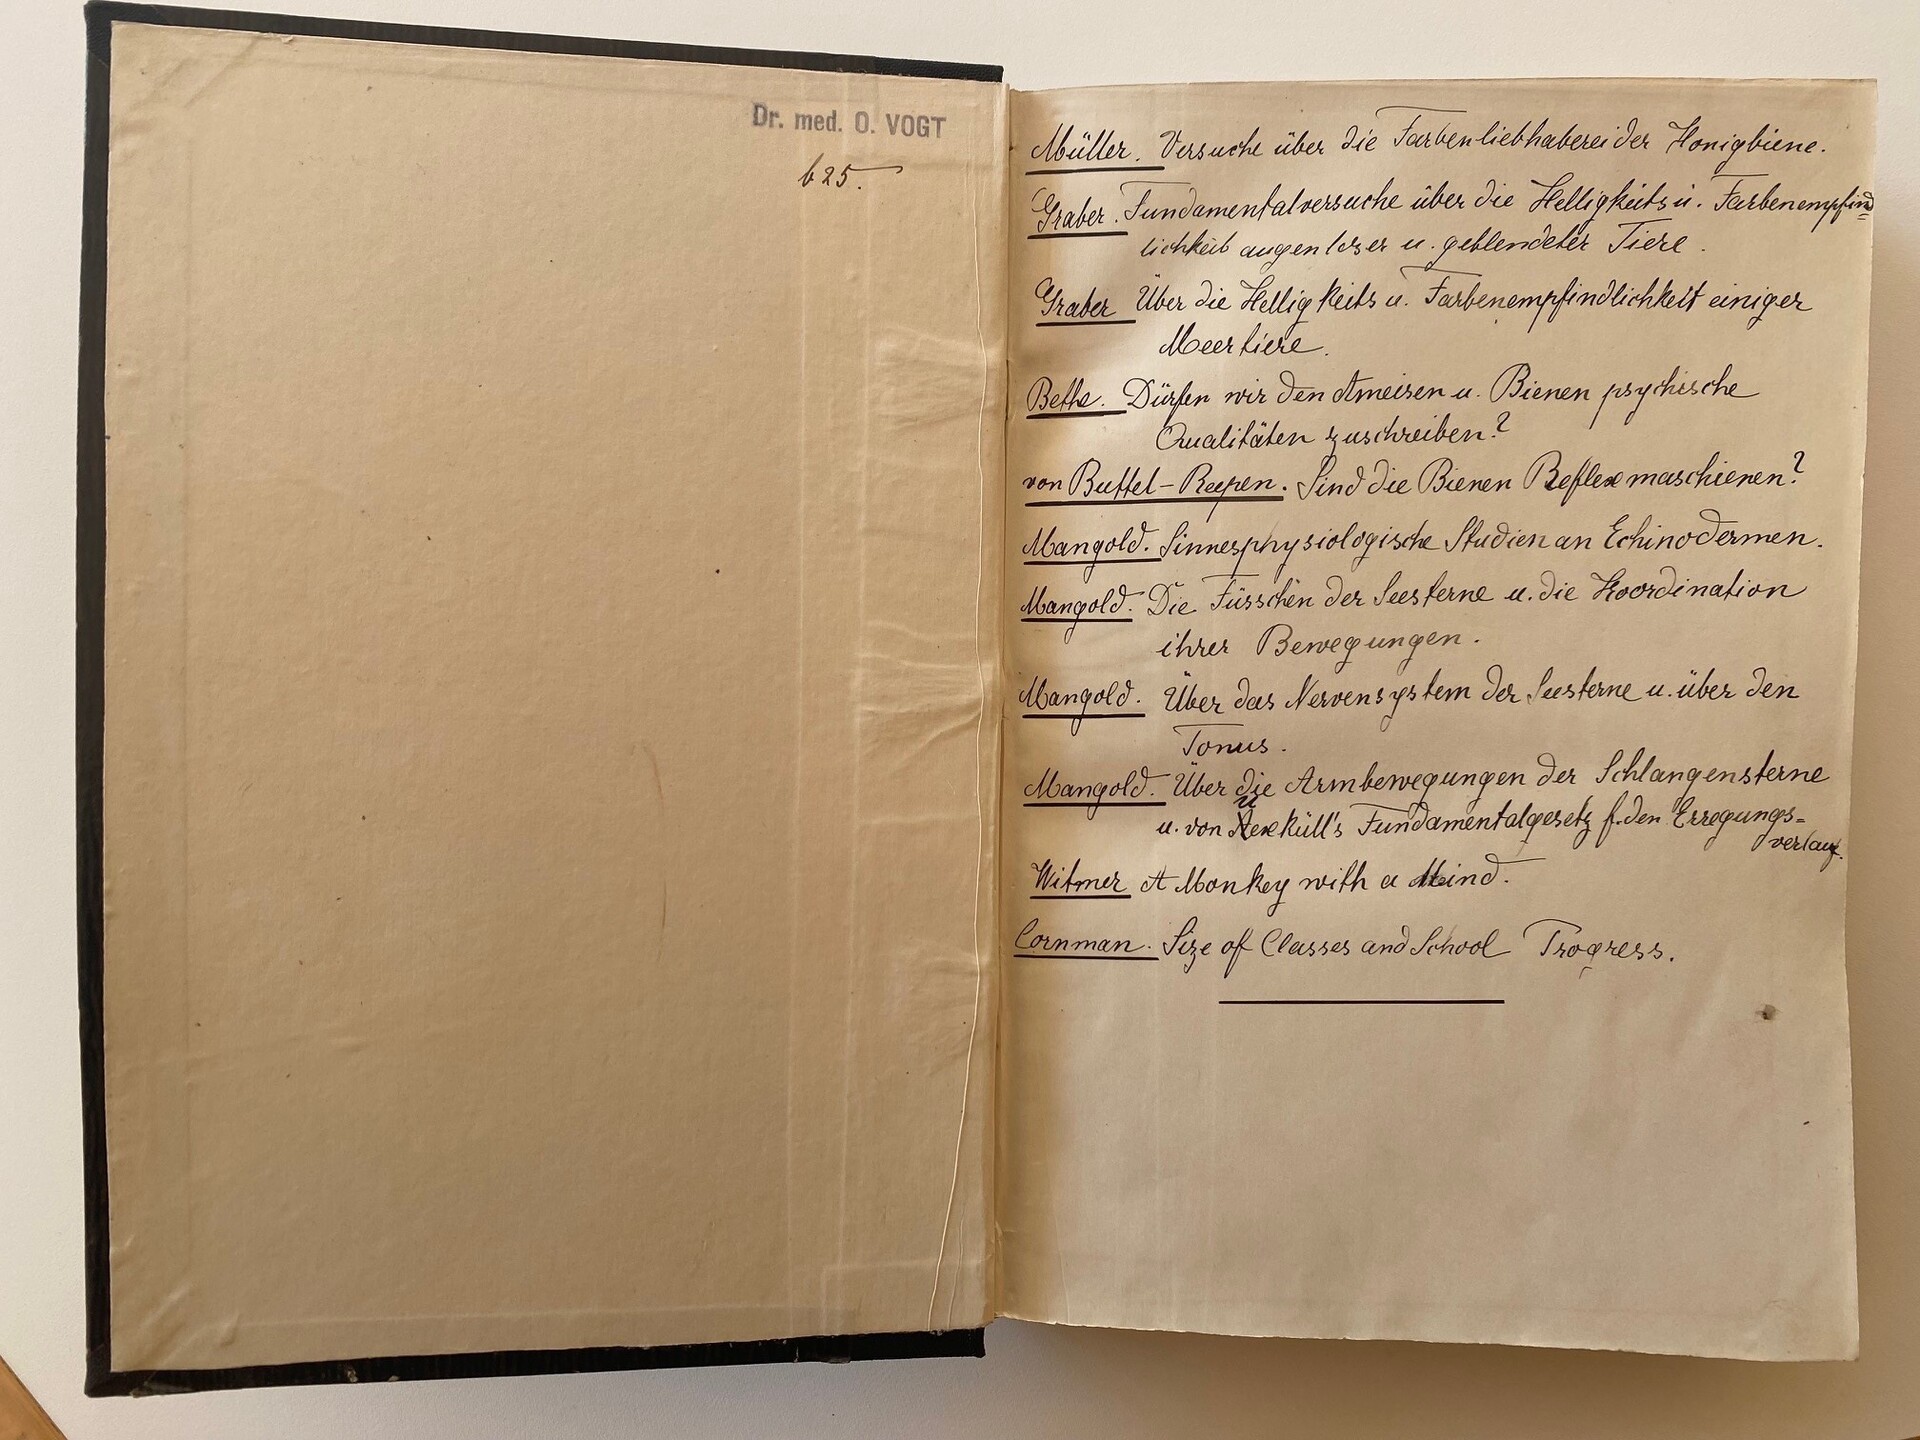 Dr. med. O. VOGT
b 25.
Müller. Versuche über die Farbenliebhaberei der Honigbiene.
Graber. Fundamentalversuche über die Helligkeits u. Farbenempfind=
lichkeit augenloser u. geblendeter Tiere.
Graber Über die Helligkeits u. Farbenempfindlichkeit einiger
Meertiere.
Bethe. Dürfen wir den Ameisen u. Bienen psychische
Qualitäten zuschreiben?
von Buttel-Reepen. Sind die Bienen Reflexmaschienen?
Mangold. Sinnesphysiologische Studien an Echinodermen.
Mangold. Die Füsschen der Seesterne u. die Koordination
ihrer Bewegungen.
Mangold. Über das Nervensystem der Seesterne u. über den
Tonus.
Mangold. Über die Armbewegungen der Schlangensterne
u. von Uexküll's Fundamentalgesetz f. den Erregungs=
verlauf.
Witmer A Monkey with a Mind.
Cornman. Size of Classes and School Progress.